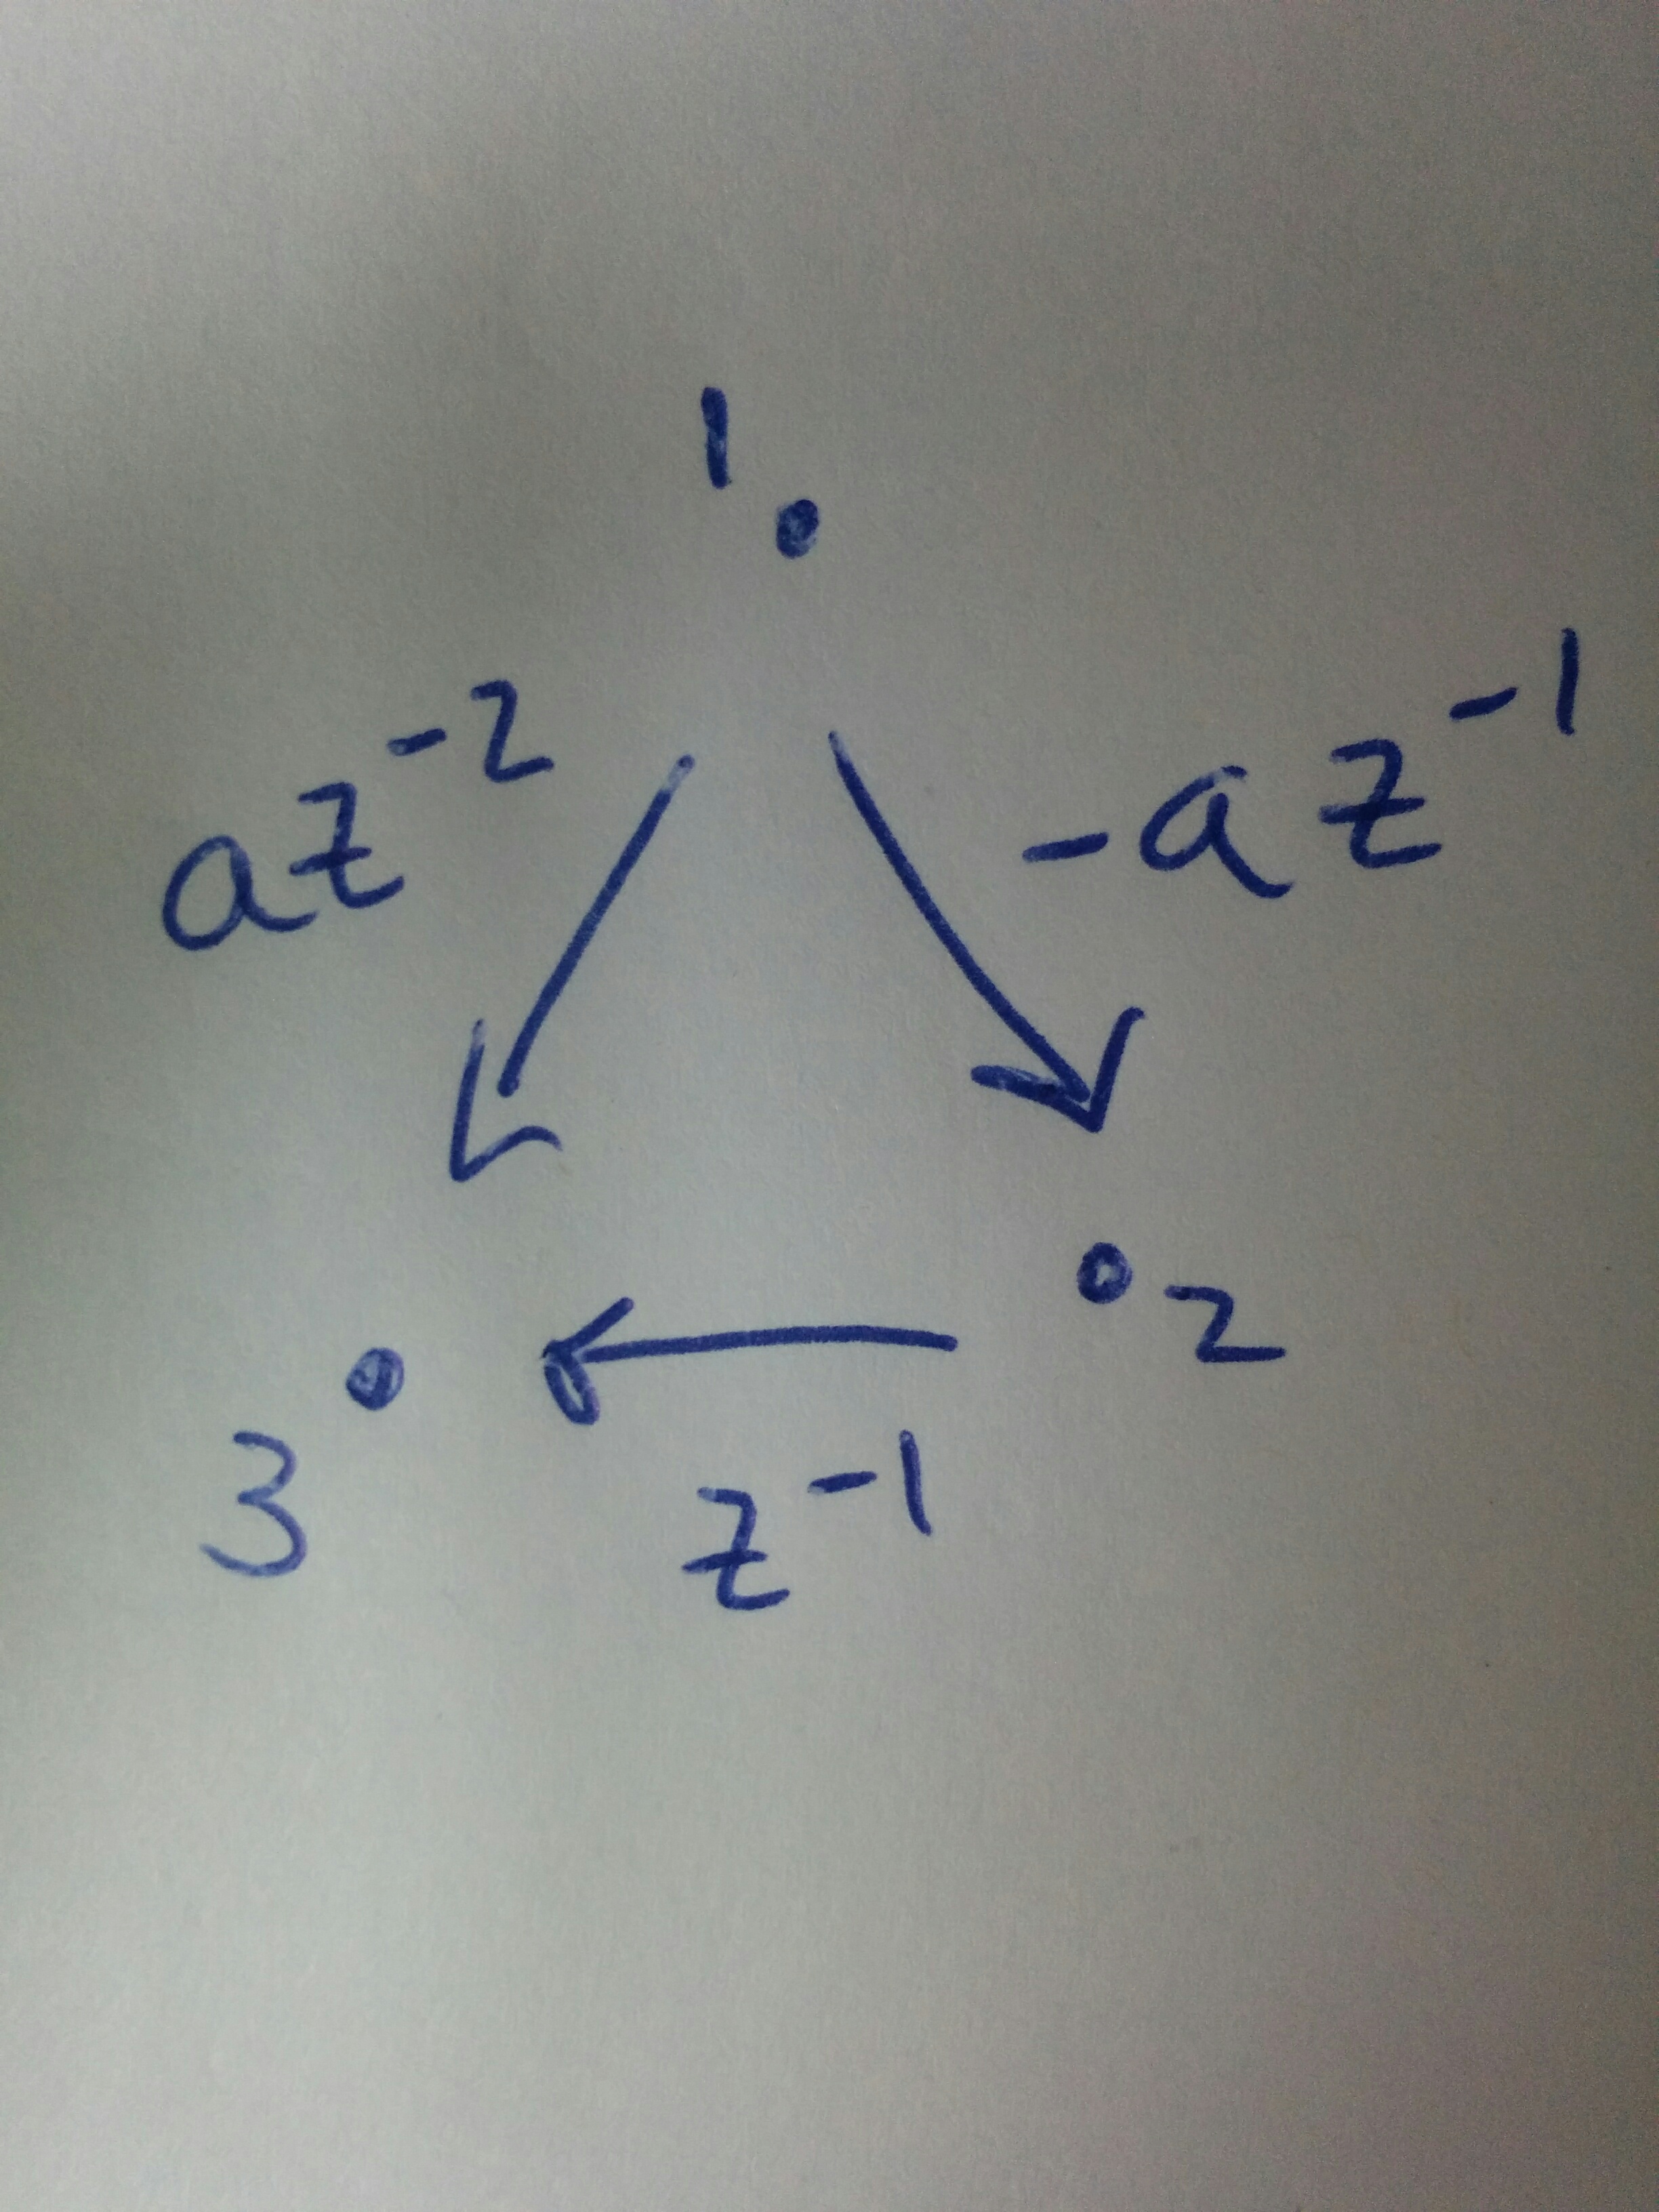 1
az⁻²
-az⁻¹
2
3
z⁻¹